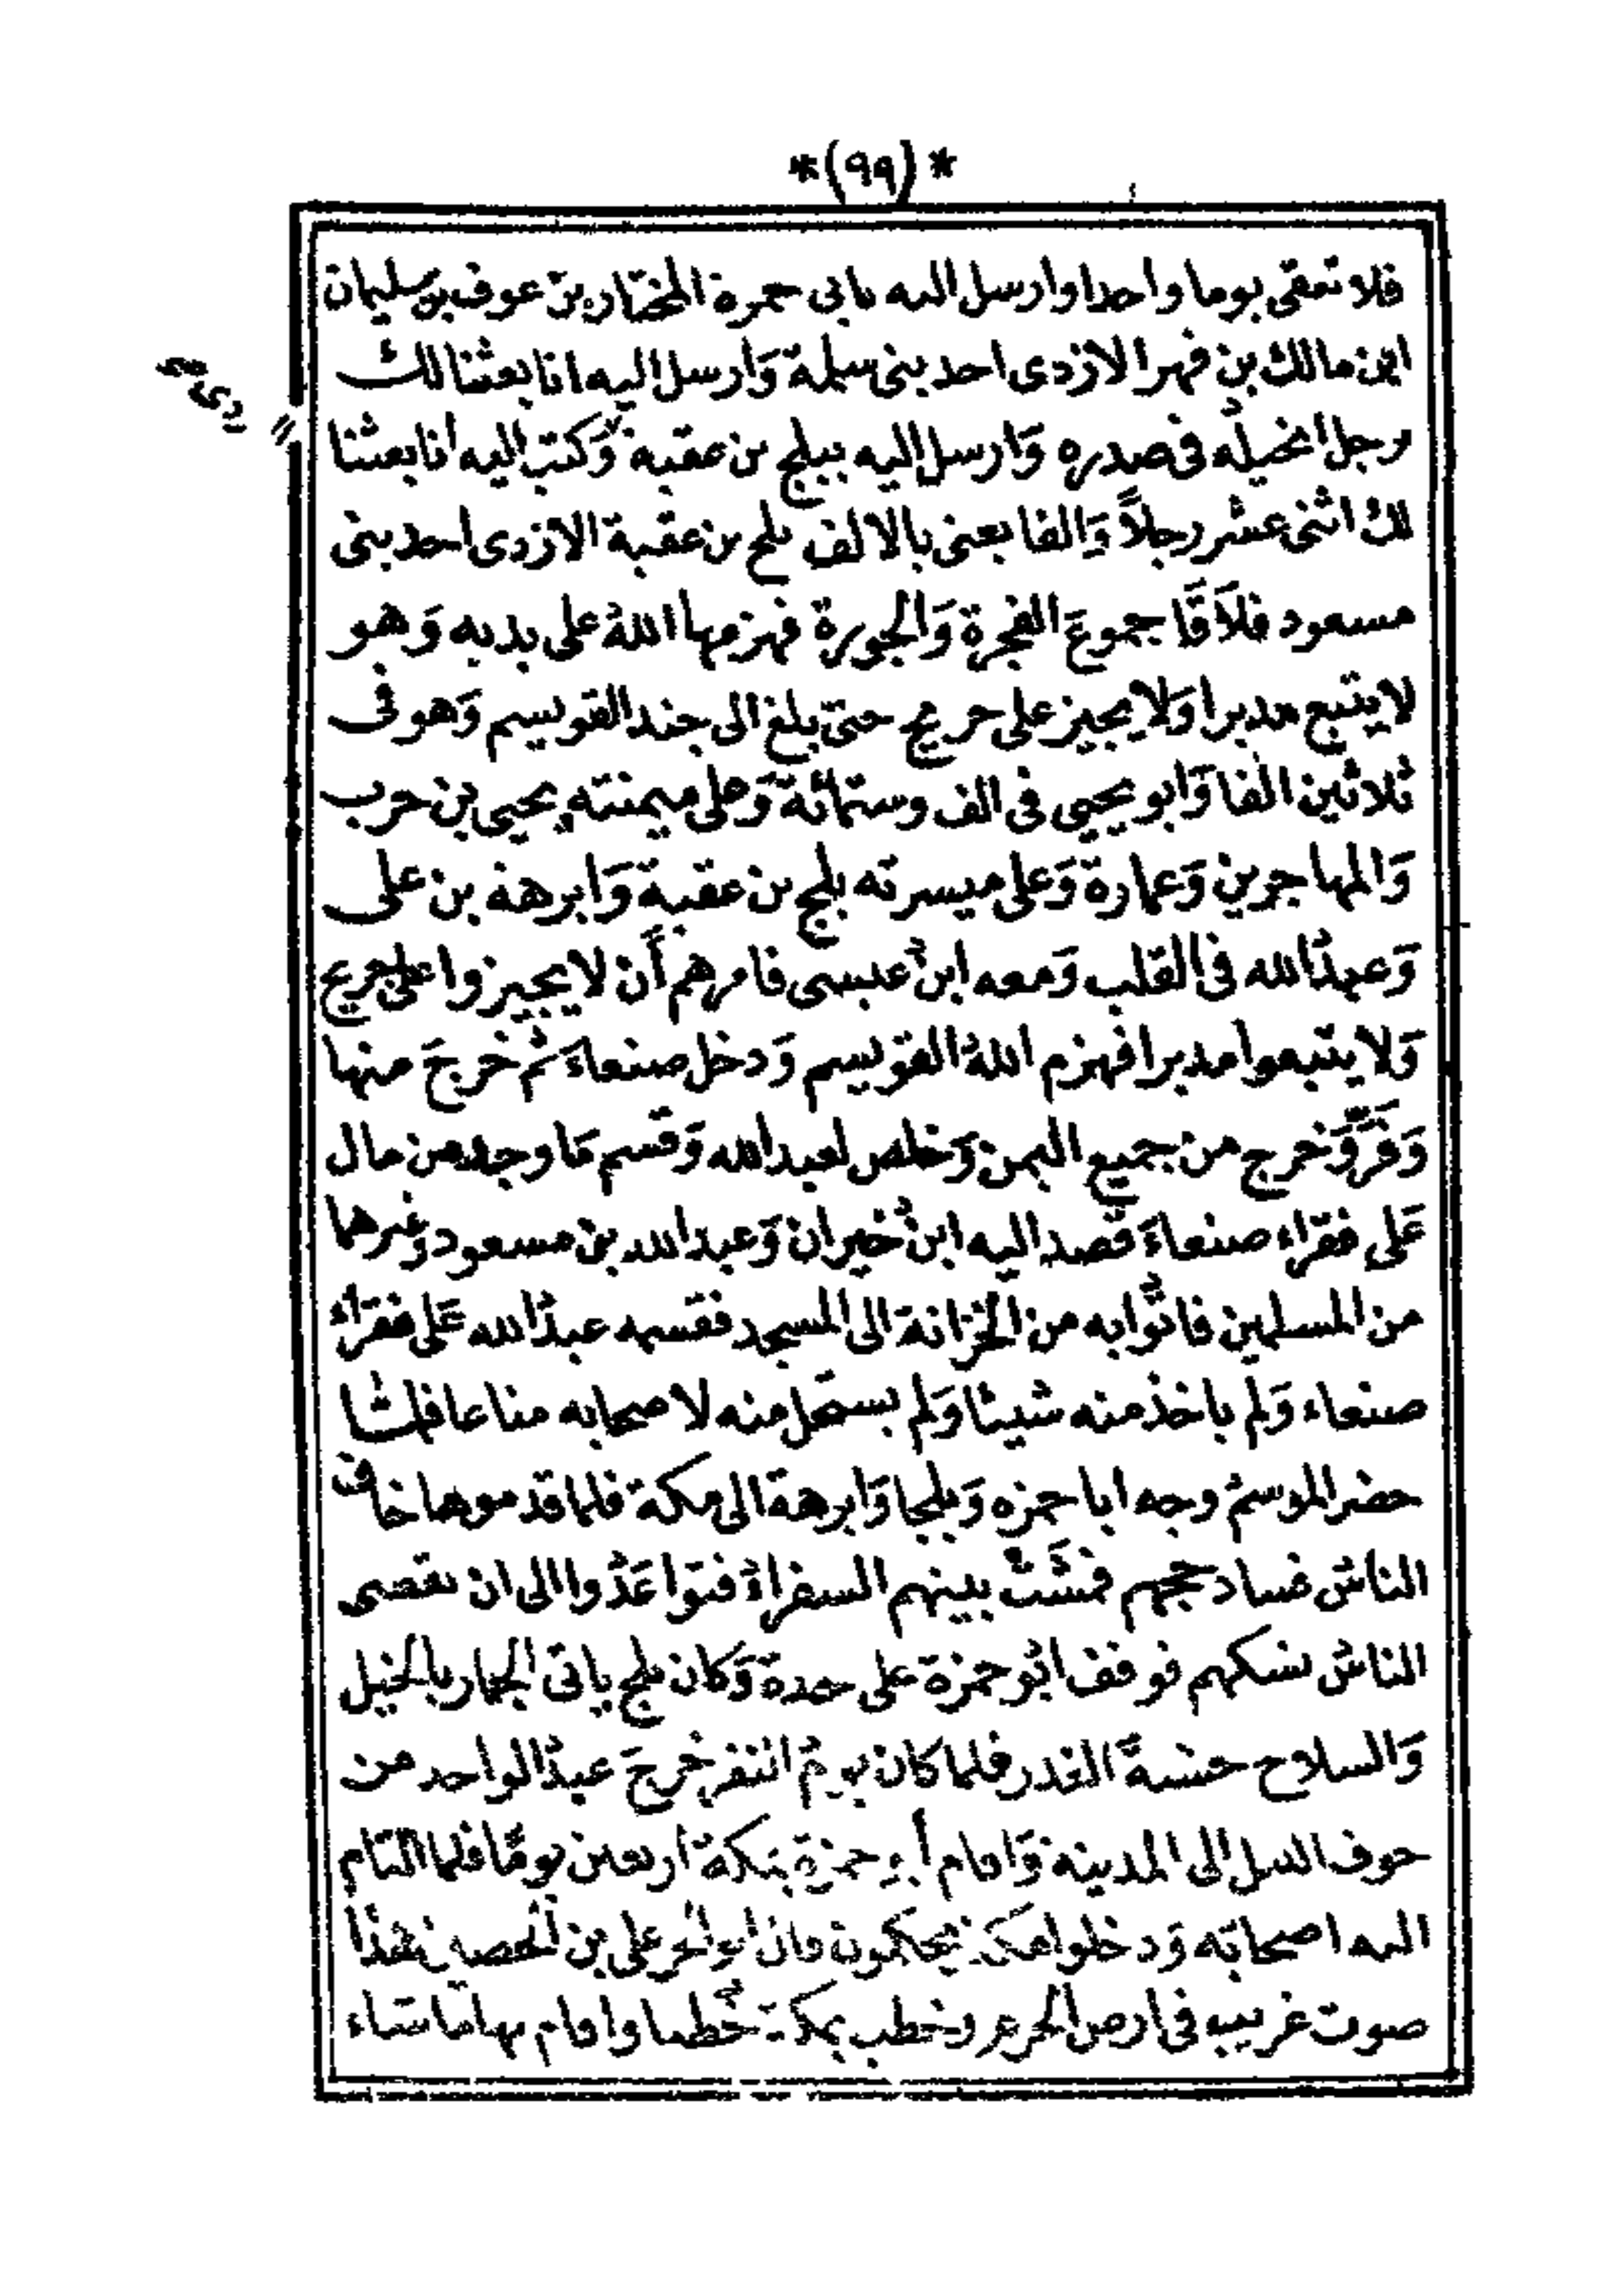 *(٩٩)*
فلا تبقى يوما واحدا وارسل اليه بابى حمزة المختار بن عوف بن سليمان
ابن مالك بن فهر الازدى احد بنى سيلمة وَارسل اليه انا بعثنا لك
برجل انجيله فى صدره وَارسل اليه ببلج بن عقبة وَكتب اليه انا بعثنا
لك اثنى عشر رجلاً وَالفا يعنى بالالف بلج بن عقبة الازدى احد بنى
مسعود فلاَقَا جموعَ الفجرة وَالجورة فهزمها اللهُ على يديه وَهو
لا يتبع مدبرا وَلا يجيز على جريح حتى بلغ الى جند القويسم وَهو فى
ثلاثين الفا وَابو يحيى فى الف وستمائة وَعلى ميمنته يحيى بن حرب
وَالمهاجرين وَعمارة وَعلى ميسرته بلج بن عقبة وَابرهة بن على
وَعبدُ الله فى القلب وَمعه ابنُ عيسى فامرهم أَن لا يجيزوا على جريح
وَلا يتبعوا مدبرا فهزم اللهُ القويسم وَدخل صنعاءَ ثم خرجَ منها
وَفَرَّ وَخرج من جميع اليمن وَخلص لعبد الله وَقسم مَا وجد من مال
عَلى فقراء صنعاءَ قصد اليه ابنُ خيران وَعبد الله بن مسعود وغيرهما
من المسلمين فاتوا به من الخزانة الى المسجد فقسمه عبدُ الله عَلى فقراءِ
صنعاء وَلم ياخذ منه شيئا وَلم يستحل منه لاصحابه متاعا فلمّا
حضر الموسمُ وجه ابا حمزه وَبلجا وَابرهة الى مكة فلما قدموها خاف
الناسُ فساد حجهم فمشَتْ بينهم السفراءُ فتواعَدُوا الى ان يقضى
الناسُ نسكهم فوقف ابُو حمزة على حدة وَكان بلج ياتى الجمار بالخيل
وَالسلاح خشيةَ الغدر فلما كان يومُ النفر خرجَ عبدُ الواحد من
جوف الليل الى المدينة وَاقام أبو حمزة بمكة أربعين يومًا فلما التام
اليه اصحابه وَدخلوا مكة يحكمون قال ابو الحر على بن الحصين هذا
صوت غريب فى ارض الحرم وخطب بمكة خُطبا واقام بها ما شاء